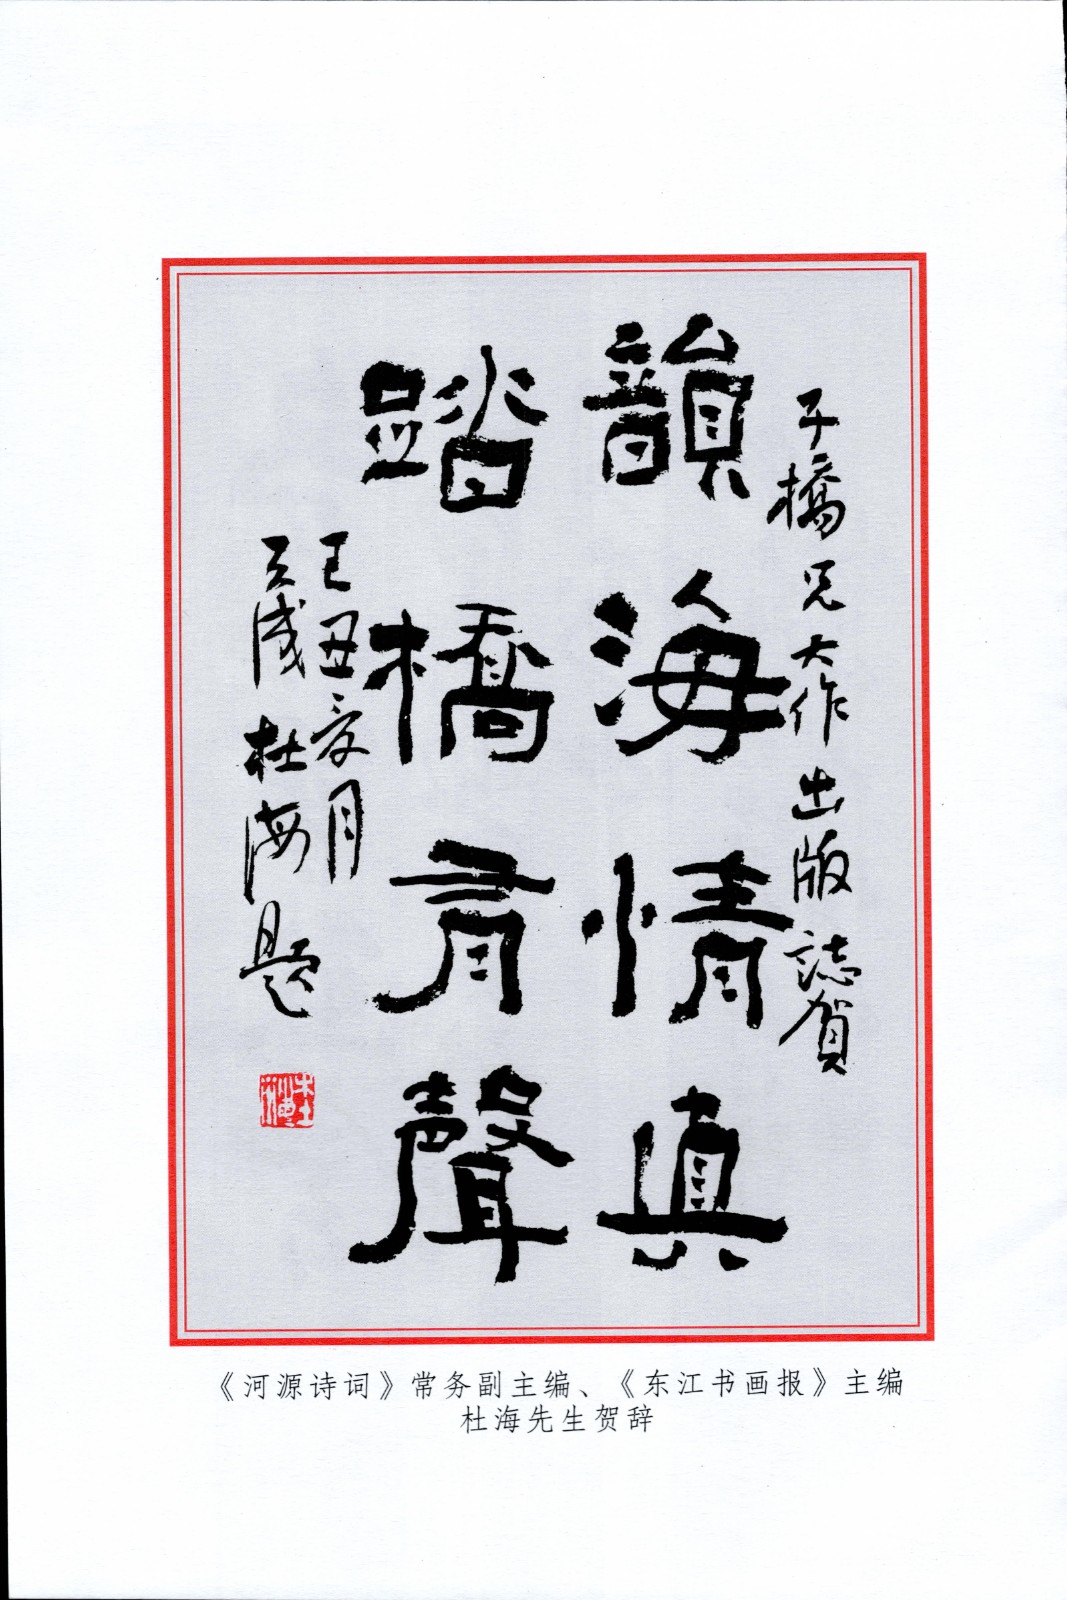 子橋兄大作出版誌賀
韻海情真
踏橋有聲
丑夏月
杜海題
《河源诗词》常务副主编、《东江书画报》主编
杜海先生贺辞